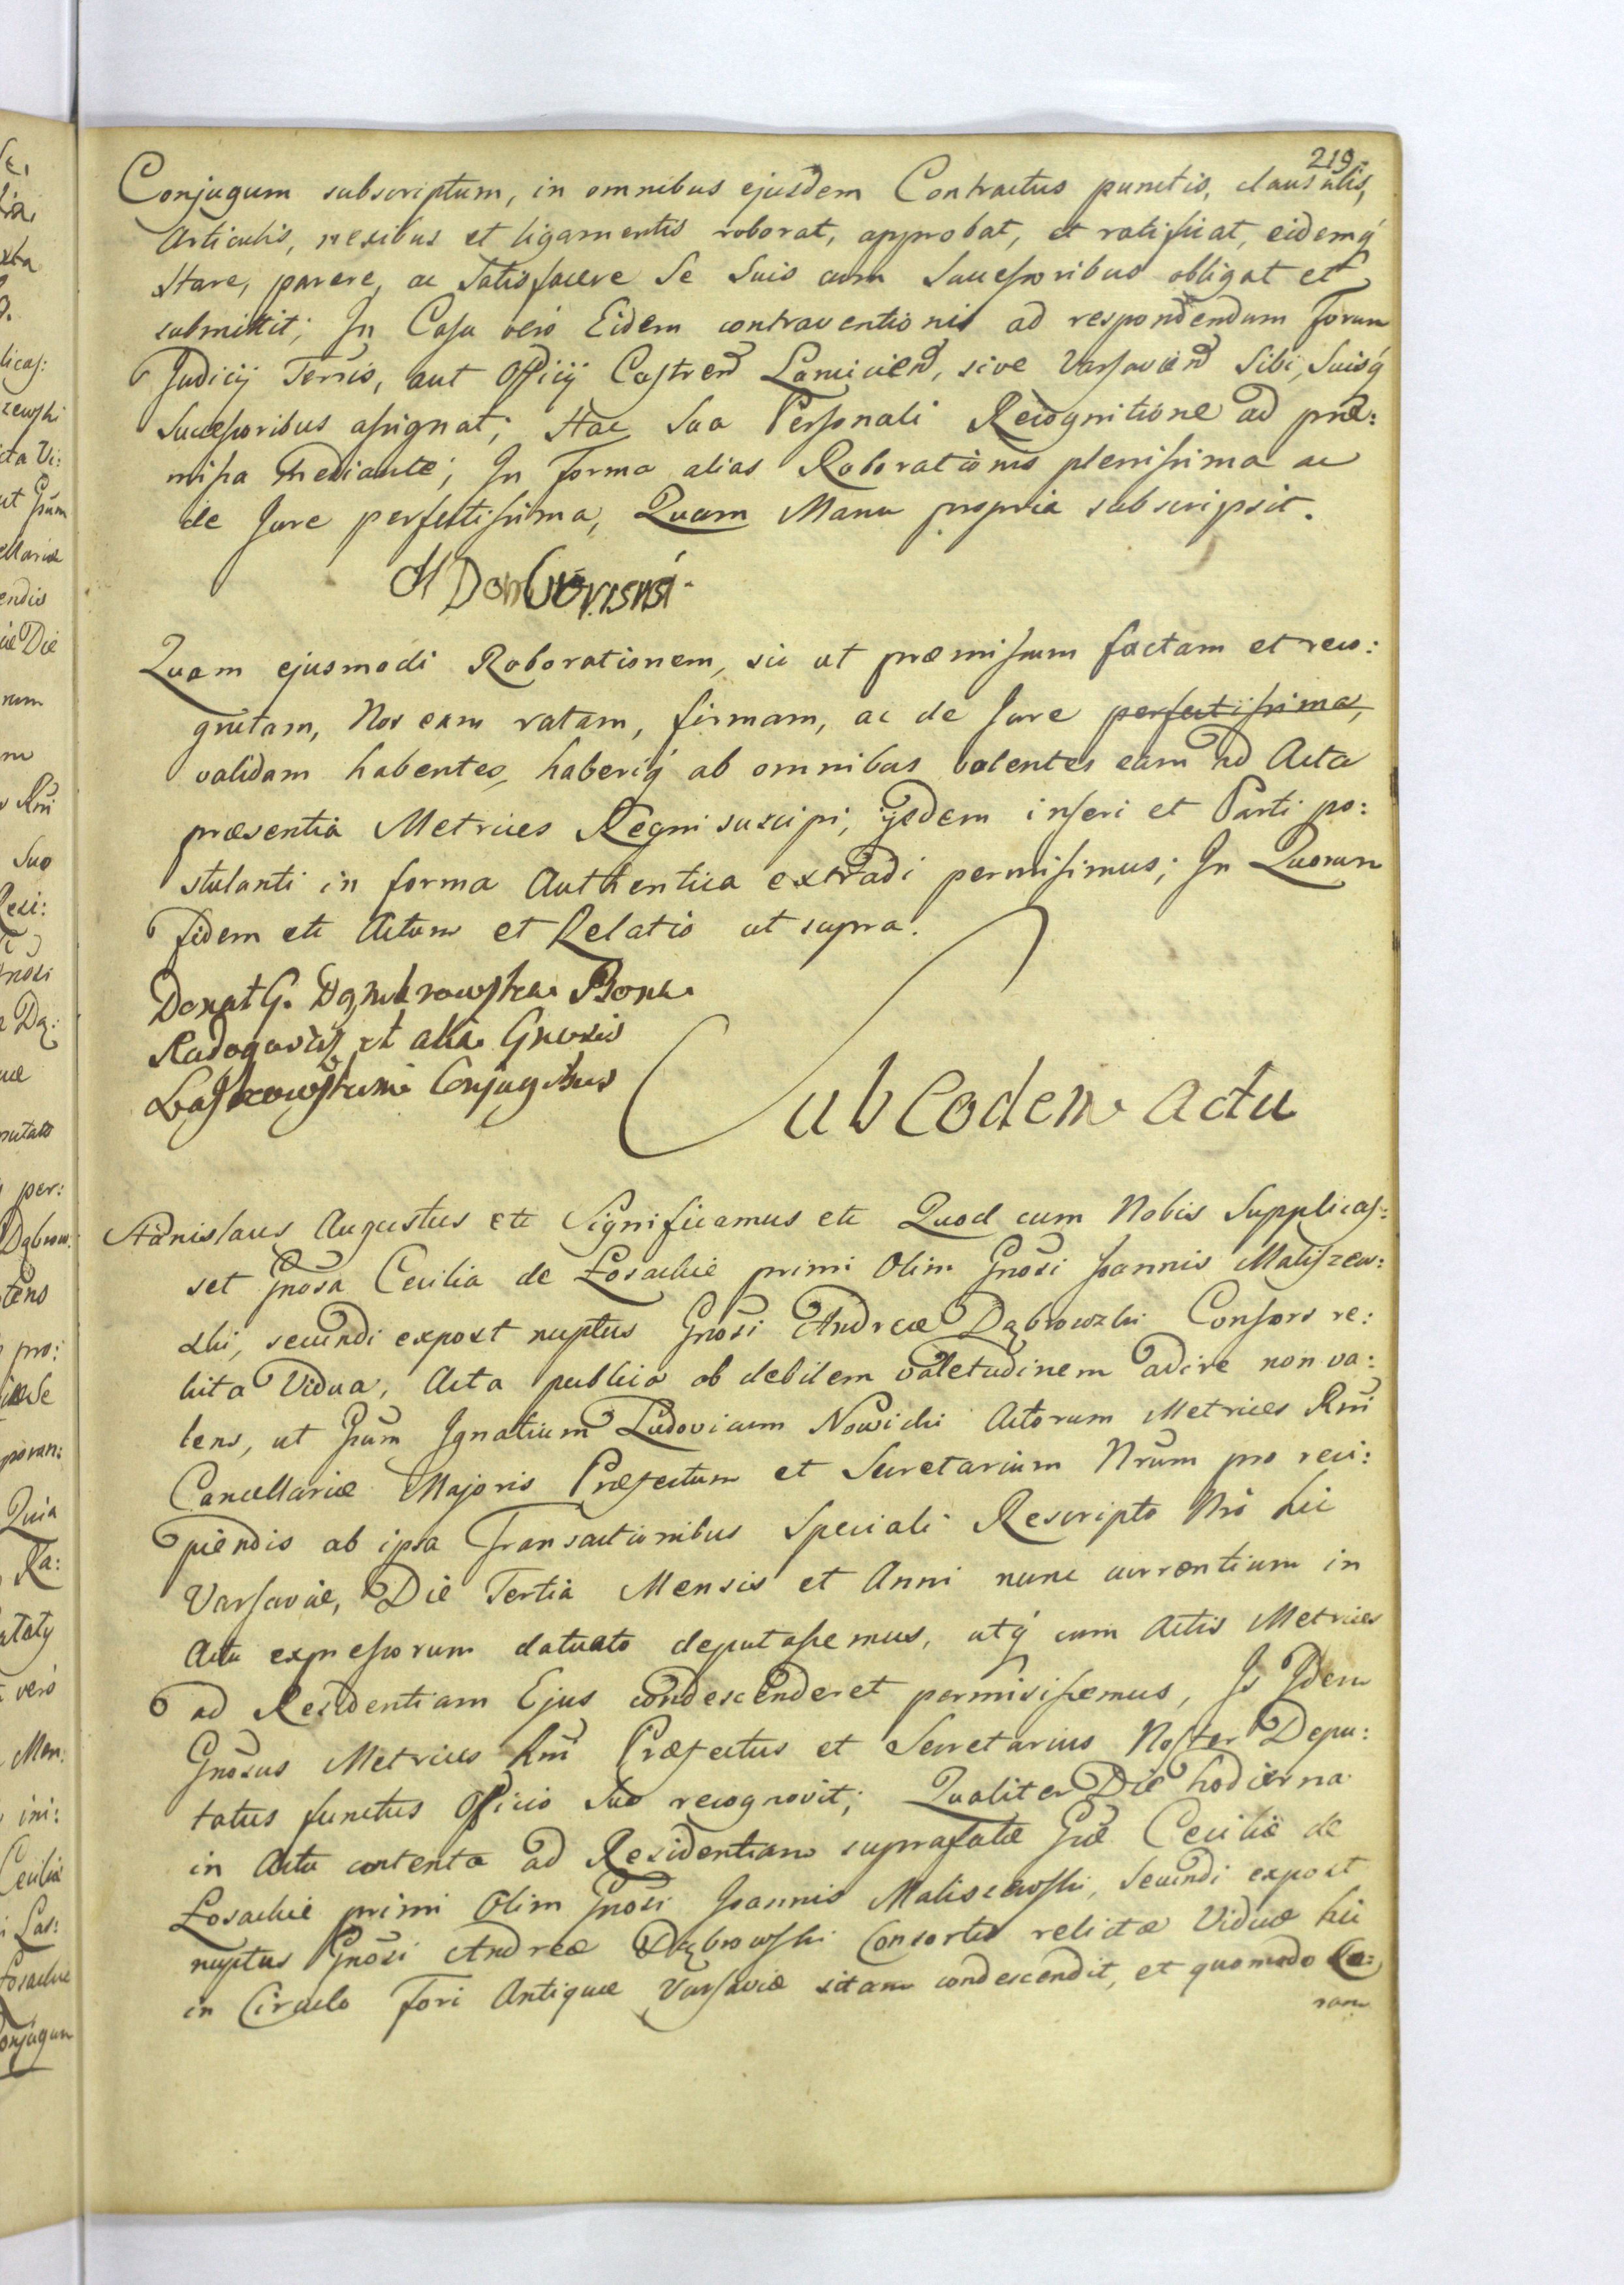 219
Conjugum subscriptum, in omnibus ejusdem Contractus punctis, clausulis,
Articulis, nexibus et ligamentis roborat, approbat, et ratificat, eidemq́
stare, parere, ac Satisfacere Se Suis cum Successoribus obligat et
submittit; In Casu verò Eidem contraventionis ad respondendum Forum
Judicij Terris, aut Officij Castren̄ Lomicien̄, sive Varsavien̄ Sibi, Suisq́
Successoribus assignat; Hac Sua Personali Recognitione ad præ:
missa Mediante; In Forma alias Roborationis plenissima ac
de Jure perfectissima, Quam Manu propria subscripsit.
Quam ejusmodi Roborationem, sic ut præmissum factam et reco:
gnitam, Nos eam ratam, firmam, ac de Jure perfectissima,
validam habentes, haberiq́ ab omnibus volentes eam ad Acta
præsentia Metrices Regni suscipi, ijsdem inseri et Parti po:
stulanti in forma Authentica extradi permisimus; In Quorum
fidem etc Actum et Relatio ut supra.
Donat G. Dąmbrowska Bona
Radogoszcz et alia Gnosis
Laskowskim Conjugibus
Sub Eodem Actu
Stanislaus Augustus etc Significamus etc Quod cum Nobis Supplicas:
set Gnōsa Cecilia de Łosackie primi Olim Gnōsi Joannis Maliszew:
ski, secundi expost nuptus Gnōsi Andreæ Dąbrowski Consors re:
licta Vidua, Acta publica ob debilem valetudinem adire non va:
lens, ut Gūm Ignatium Ludovicum Nowicki Actorum Metrices Rn̄i
Cancellariæ Majoris Præfectum et Secretarium Nrūm pro reci:
piendis ab ipsa Transactionibus Speciali Rescripto Nrō hic
Varsaviæ, Die Tertia Mensis et Anni nunc currentium in
Actu expressorum datuato deputassemus, utq́ cum Actis Metrices
ad Residentiam Ejus condescenderet permisissemus, Is Idem
Gnōsus Metrices Rn̄i Præfectus et Secretarius Noster Depu:
tatus functus Officio Suo recognovit; Qualiter Die hodierna
in Actu contenta ad Residentiam suprafatæ Gn̄æ Ceciliæ de
Łosackie primi Olim Gnōsi Joannis Maliszewski, Secundi expost
nuptus Gnōsi Andreæ Dąbrowski Consortis relictæ Viduæ hic
in Circulo Fori Antiquæ Varsaviæ sitam condescendit, et quomodo Co:
ram